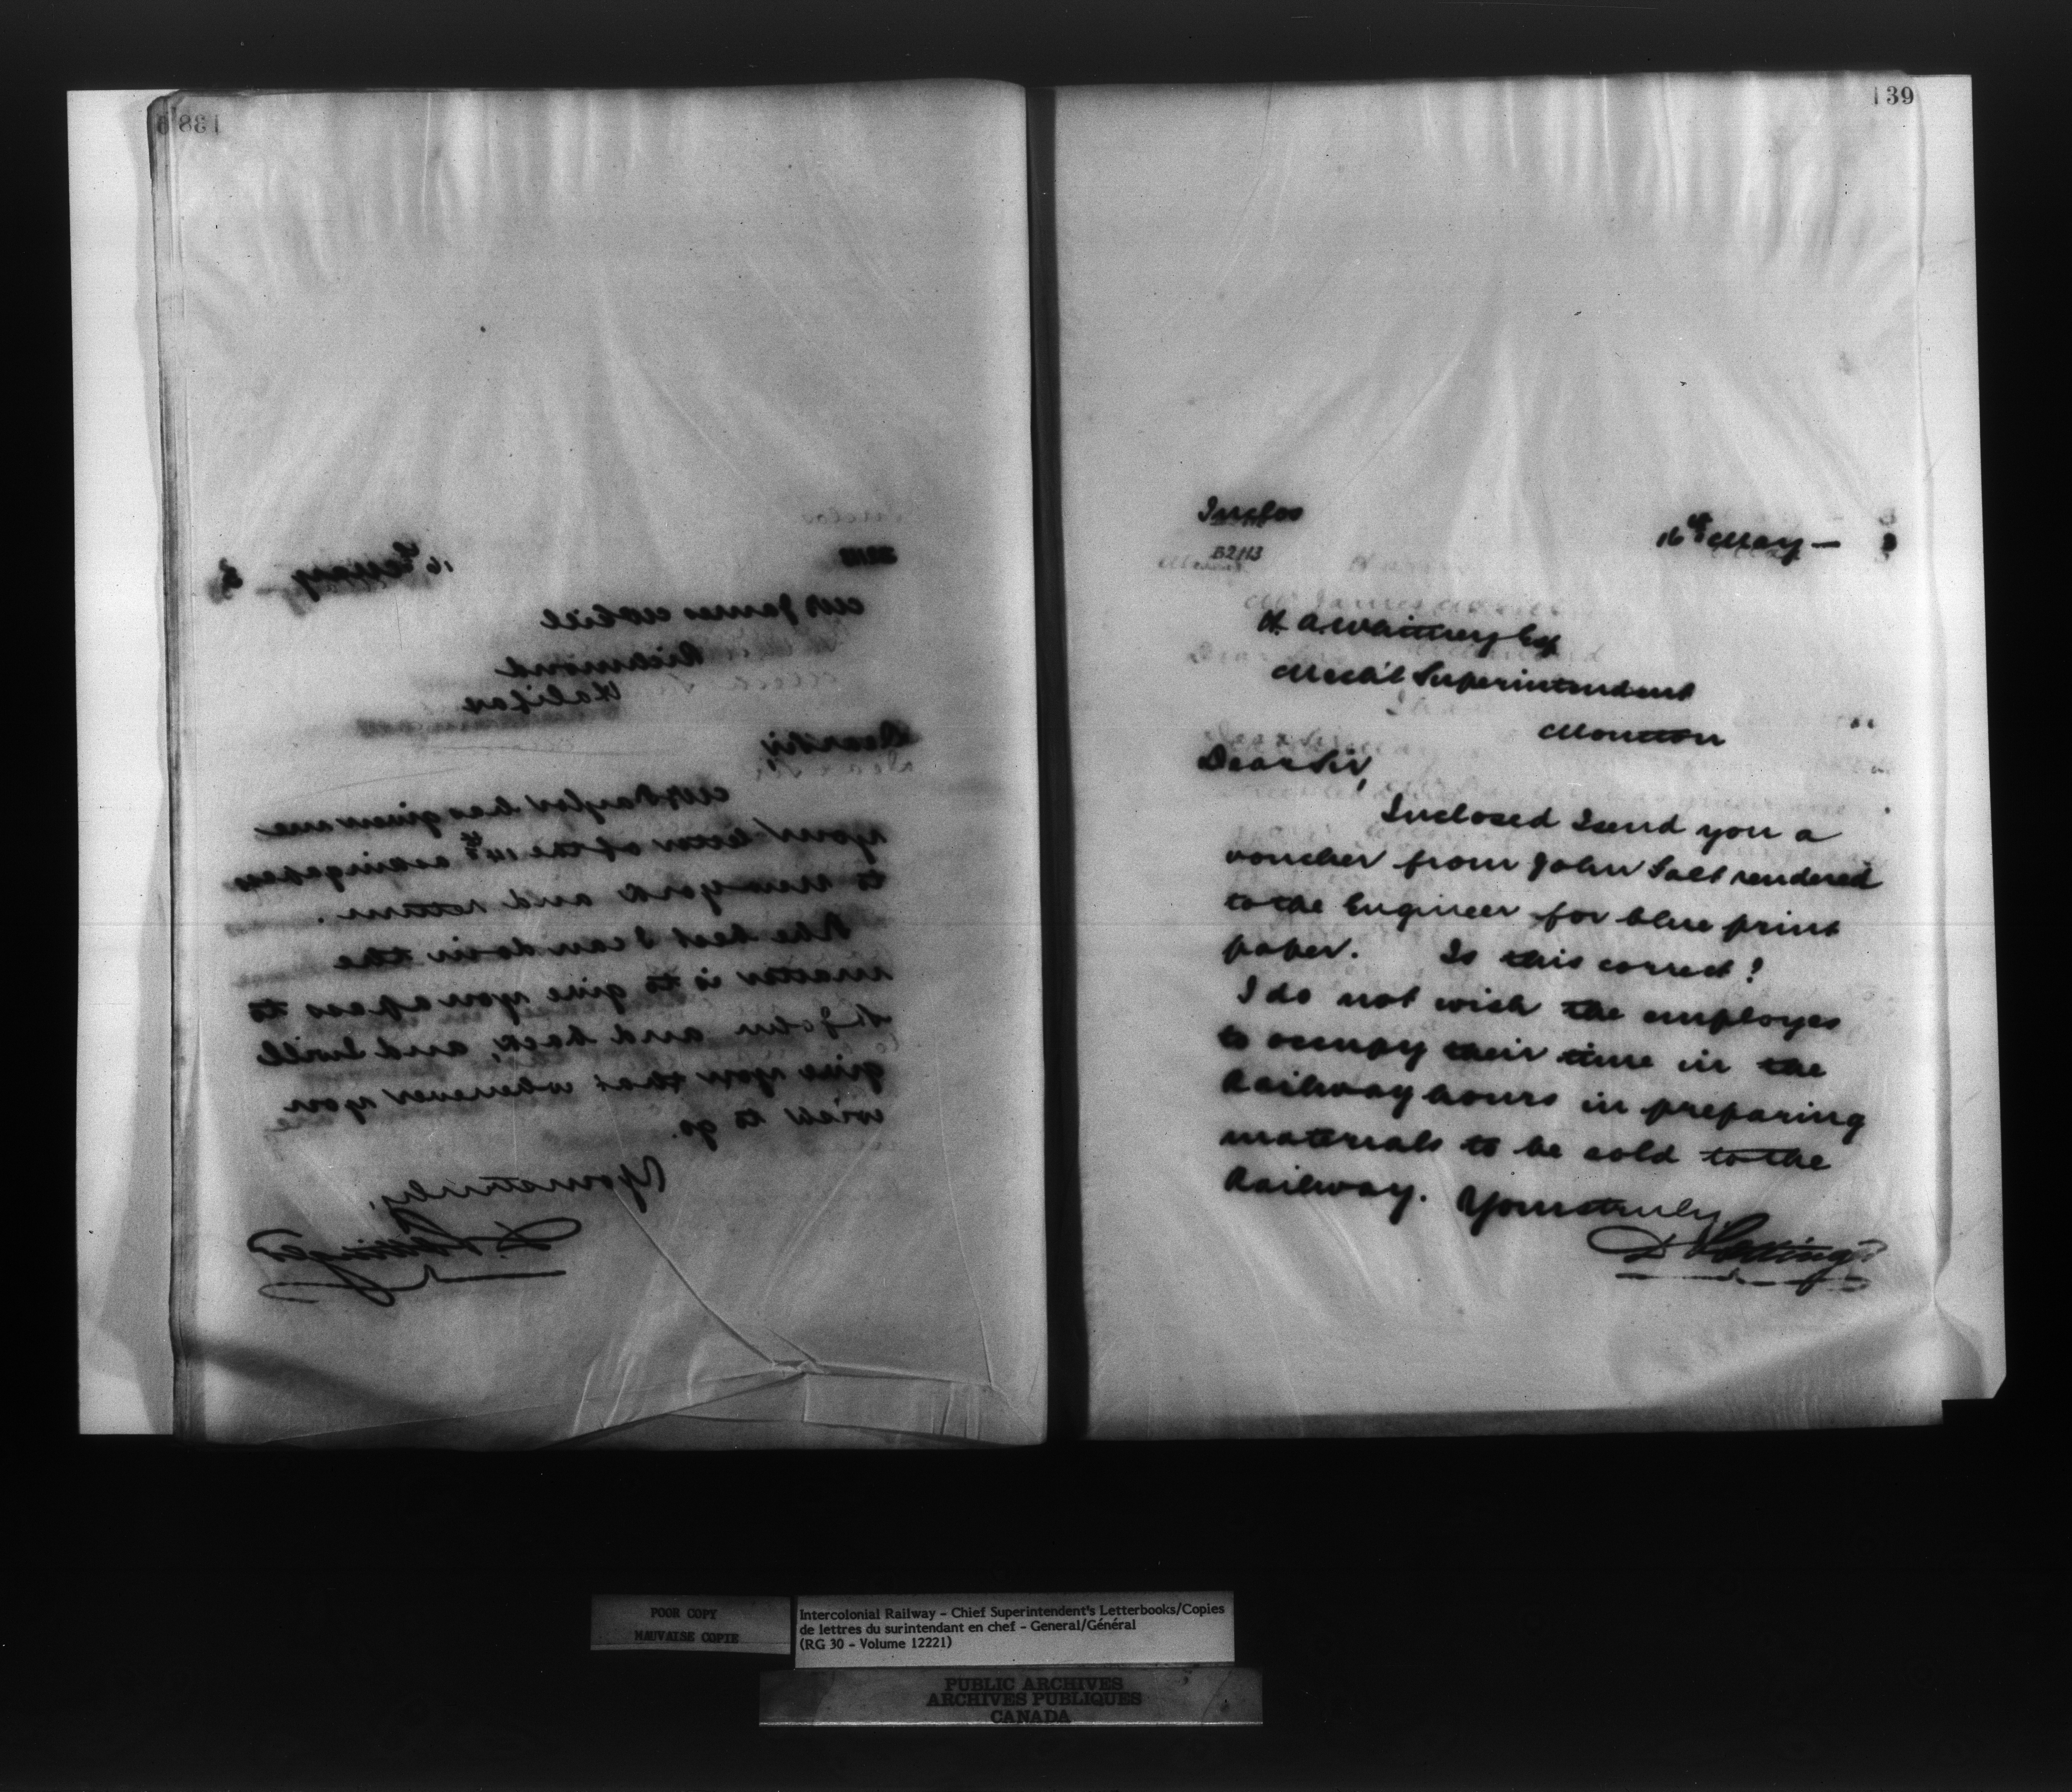 138
16th May — 8
Mr James McNeill
Richmond
Halifax
Dear Sir,
Mr Taylor has given me
your letter of the 14th asking a pass
to New York and return.
The best I can do in the
matter is to give you a pass to
St John and back, and I will
give you that whenever you
wish to go.
Yours truly,
D. Pottinger
139
Inclos
16th May — 8
B2113
H. A. Whitney Esq
Mech'l Superintendent
Moncton
Dear Sir,
Inclosed I send you a
voucher from John Salt rendered
to the Engineer for blue print
paper. Is this correct?
I do not wish the employes
to occupy their time in the
Railway hours in preparing
materials to be sold to the
Railway. Yours truly,
D Pottinger
POOR COPY
MAUVAISE COPIE
Intercolonial Railway - Chief Superintendent's Letterbooks/Copies
de lettres du surintendant en chef - General/Général
(RG 30 - Volume 12221)
PUBLIC ARCHIVES
ARCHIVES PUBLIQUES
CANADA